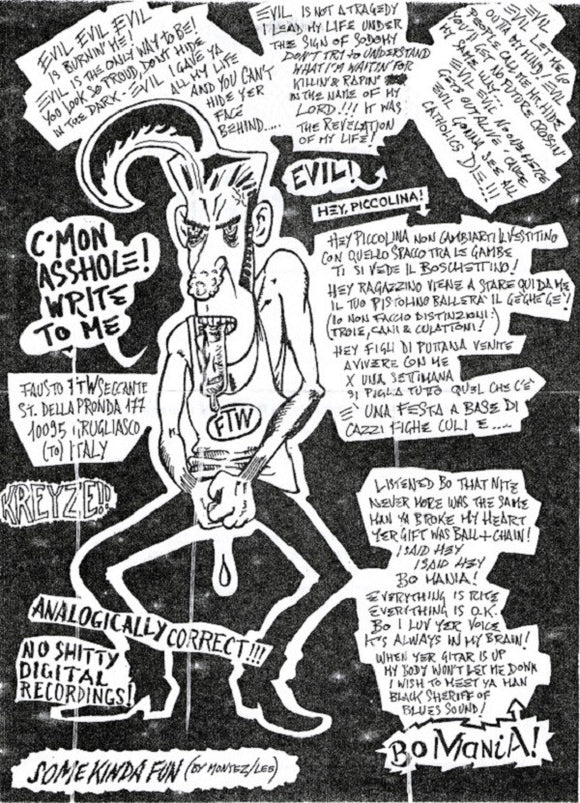 EVIL EVIL EVIL
IS BURNIN' ME!
EVIL IS THE ONLY WAY TO BE!
YOU LOOK SO PROUD, DON'T HIDE
IN THE DARK - EVIL I GAVE YA
ALL MY LIFE
AND YOU CAN'T
HIDE YER
FACE
BEHIND.....
EVIL IS NOT A TRAGEDY
I LEAD MY LIFE UNDER
THE SIGN OF SODOMY
DON'T TRY TO UNDERSTAND
WHAT I'M WAITIN' FOR
KILLIN' & RAPIN'
IN THE NAME OF MY
LORD!!! IT WAS
THE REVELATION
OF MY LIFE!
EVIL LET ME GO
OUTTA MY MIND, EVIL
PEOPLE CALL ME MR. HYDE
YOU'LL GET NO FUTURE CROSSIN'
MY SAME WAY
EVIL EVIL NO ONE HERE
GETS OUT ALIVE
EVIL GONNA SEE ALL
CATHOLICS
DIE!!!
EVIL!
HEY, PICCOLINA!
HEY PICCOLINA NON CAMBIARTI IL VESTITINO
CON QUELLO SPACCO TRA LE GAMBE
TI SI VEDE IL BOSCHETTINO!
HEY RAGAZZINO VIENE A STARE QUI DA ME
IL TUO PISTOLINO BALLERA' IL GEGHEGE'!
(IO NON FACCIO DISTINZIONI:
TROIE, CANI & CULATTONI!)
HEY FIGLI DI PUTTANA VENITE
A VIVERE CON ME
X UNA SETTIMANA
SI PIGLA TUTTO QUEL CHE C'È
E' UNA FESTA A BASE DI
CAZZI FIGHE CULI E .....
C'MON
ASSHOLE!
WRITE
TO ME
FAUSTO FTW SECCANTE
ST. DELLA PRONDA 177
10095 GRUGLIASCO
(TO) ITALY
FTW
KREYZE!!
LISTENED BO THAT NITE
NEVER MORE WAS THE SAME
MAN YA BROKE MY HEART
YER GIFT WAS BALL + CHAIN!
I SAID HEY
I SAID HEY
BO MANIA!
EVERYTHING IS RITE
EVERYTHING IS O.K.
BO I LUV YER VOICE
IT'S ALWAYS IN MY BRAIN!
WHEN YER GITAR IS UP
MY BODY WON'T LET ME DOWN
I WISH TO MEET YA MAN
BLACK SHERIFF OF
BLUES SOUND!
BO MANIA!
ANALOGICALLY CORRECT!!!
NO SHITTY
DIGITAL
RECORDINGS!
SOME KINDA FUN (BY MONTEZ/LEE)